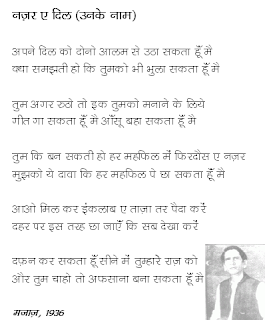 नज़र ए दिल (उनके नाम)
अपने दिल को दोनो आलम से उठा सकता हूँ मै
क्या समझती हो कि तुमको भी भुला सकता हूँ मै
तुम अगर रुठो तो इक तुमको मनाने के लिये
गीत गा सकता हूँ मै आँसू बहा सकता हूँ मै
तुम कि बन सकती हो हर महफिल में फिरदौस ए नज़र
मुझको ये दावा कि हर महफिल पे छा सकता हूँ मै
आओ मिल कर इंकलाब ए ताज़ा तर पैदा करें
दहर पर इस तरह छा जाएँ कि सब देखा करें
दफ़न कर सकता हूँ सीने में तुम्हारे राज़ को
और तुम चाहो तो अफसाना बना सकता हूँ मै
मजाज़, 1936